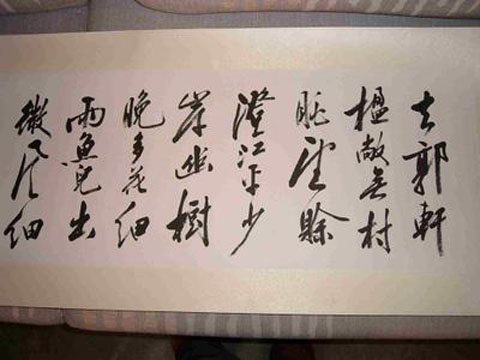 去郭軒
楹敞無村
眺望賒
澄江平少
岸幽樹
晚多花細
雨魚兒出
微風細